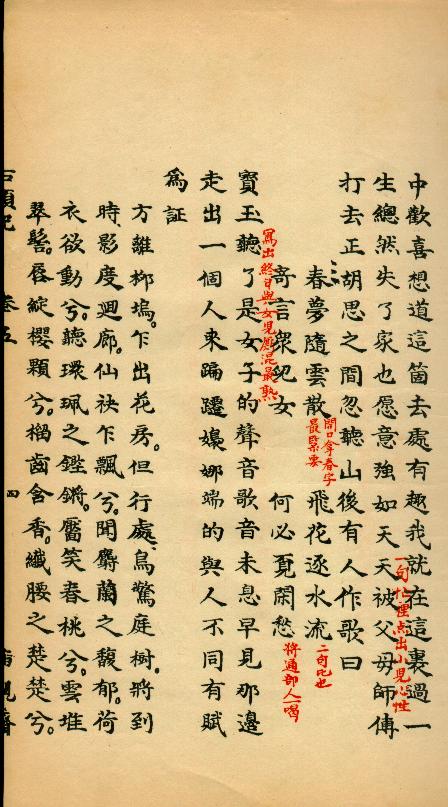 中歡喜想道這箇去處有趣我就在這裏過一
生總然失了家也愿意強如天天被父母師傅
一句忙里点出小兒心性
打去正胡思之間忽聽山後有人作歌曰
春夢隨雲散
開口拿春字
最緊要
飛花逐水流
二句比也
寄言眾兒女
何必覓閑愁
將通部人一喝
寶玉聽了是女子的聲音歌音未息早見那邊
寫出終日與女兒厮混最熟
走出一個人來蹁躚嬝娜端的與人不同有賦
為証
方離柳塢。乍出花房。但行處鳥驚庭樹。將到
時影度迴廊。仙袂乍飄兮。聞麝蘭之馥郁。荷
衣欲動兮。聽環珮之鏗鏘。靨笑春桃兮。雲堆
翠髻。唇綻櫻顆兮。榴齒含香。纖腰之楚楚兮。
石頭記 卷五 四